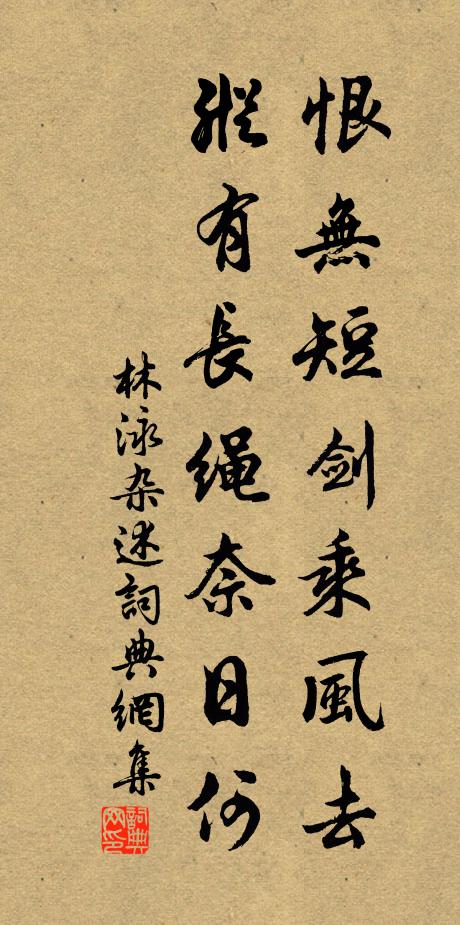 恨無短劍乘風去
縱有長绳奈日何
林泳杂述詞典網集
詞典
网印